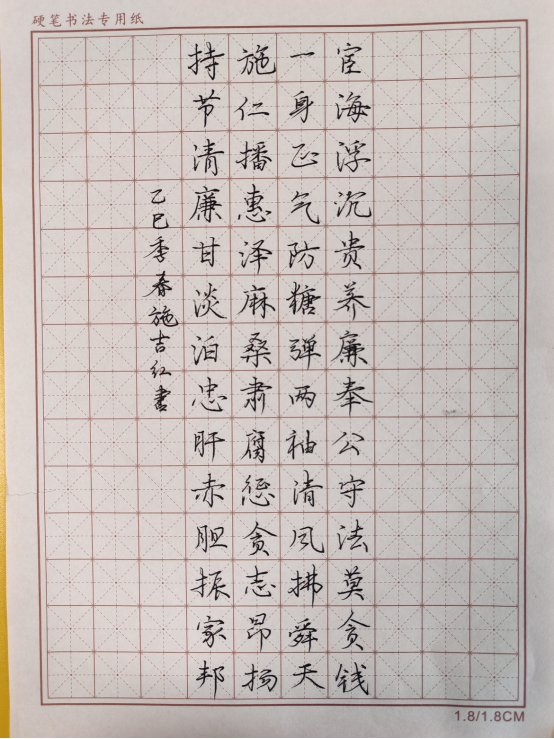 硬笔书法专用纸
宦海浮沉贵养廉奉公守法莫贪钱
一身正气防糖弹两袖清风拂舜天
施仁播惠泽麻桑肃腐惩贪志昂扬
持节清廉甘淡泊忠肝赤胆振家邦
乙巳季春施吉红书
1.8/1.8CM